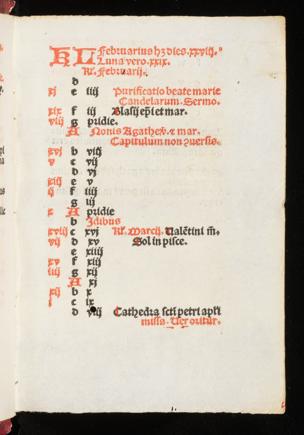 KL Februarius hꝫ dies. xxviij.
Luna vero. xxix.
Kl. Februarij.
d
xj e iiij Purificatio beate marie
Candelarum. Sermo.
xix f iij Blasij ep̄i et mar.
viij g pridie.
A Nonis Agathe v. ⁊ mar.
Capitulum non ꝯuersio.
xvj b viij
v c vij
d vj
xiij e v
ij f iiij
g iij
x A pridie
b Idibus
xviij c xvj Kl. Marcij. Valētini m̄.
vij d xv Sol in pisce.
e xiiij
xv f xiij
iiij g xij
A xj
xij b x
j c ix
d viij Cathedra scti petri apli
missa. Ver oritur.